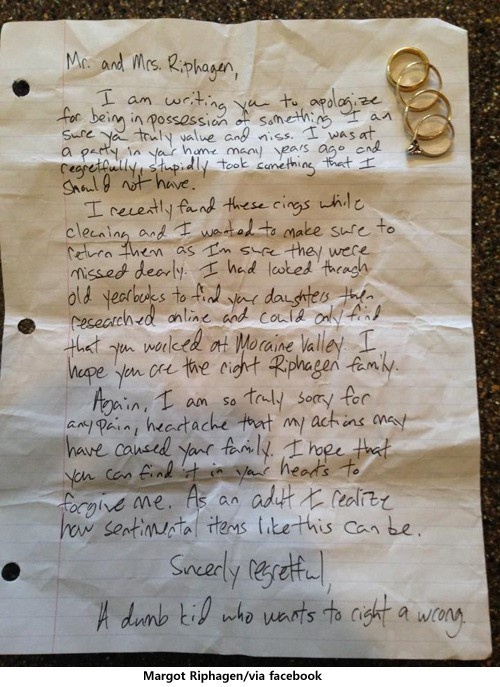 Mr. and Mrs. Riphagen,
I am writing you to apologize
for being in possession of something I am
sure you truly value and miss. I was at
a party in your home many years ago and
regretfully, stupidly took something that I
should not have.
I recently found these rings while
cleaning and I wanted to make sure to
return them as I'm sure they were
missed dearly. I had looked through
old yearbooks to find your daughters then
researched online and could only find
that you worked at Moraine Valley. I
hope you are the right Riphagen family.
Again, I am so truly sorry for
any pain, heartache that my actions may
have caused your family. I hope that
you can find it in your hearts to
forgive me. As an adult I realize
how sentimental items like this can be.
Sincerly regretful,
A dumb kid who wants to right a wrong.
Margot Riphagen/via facebook